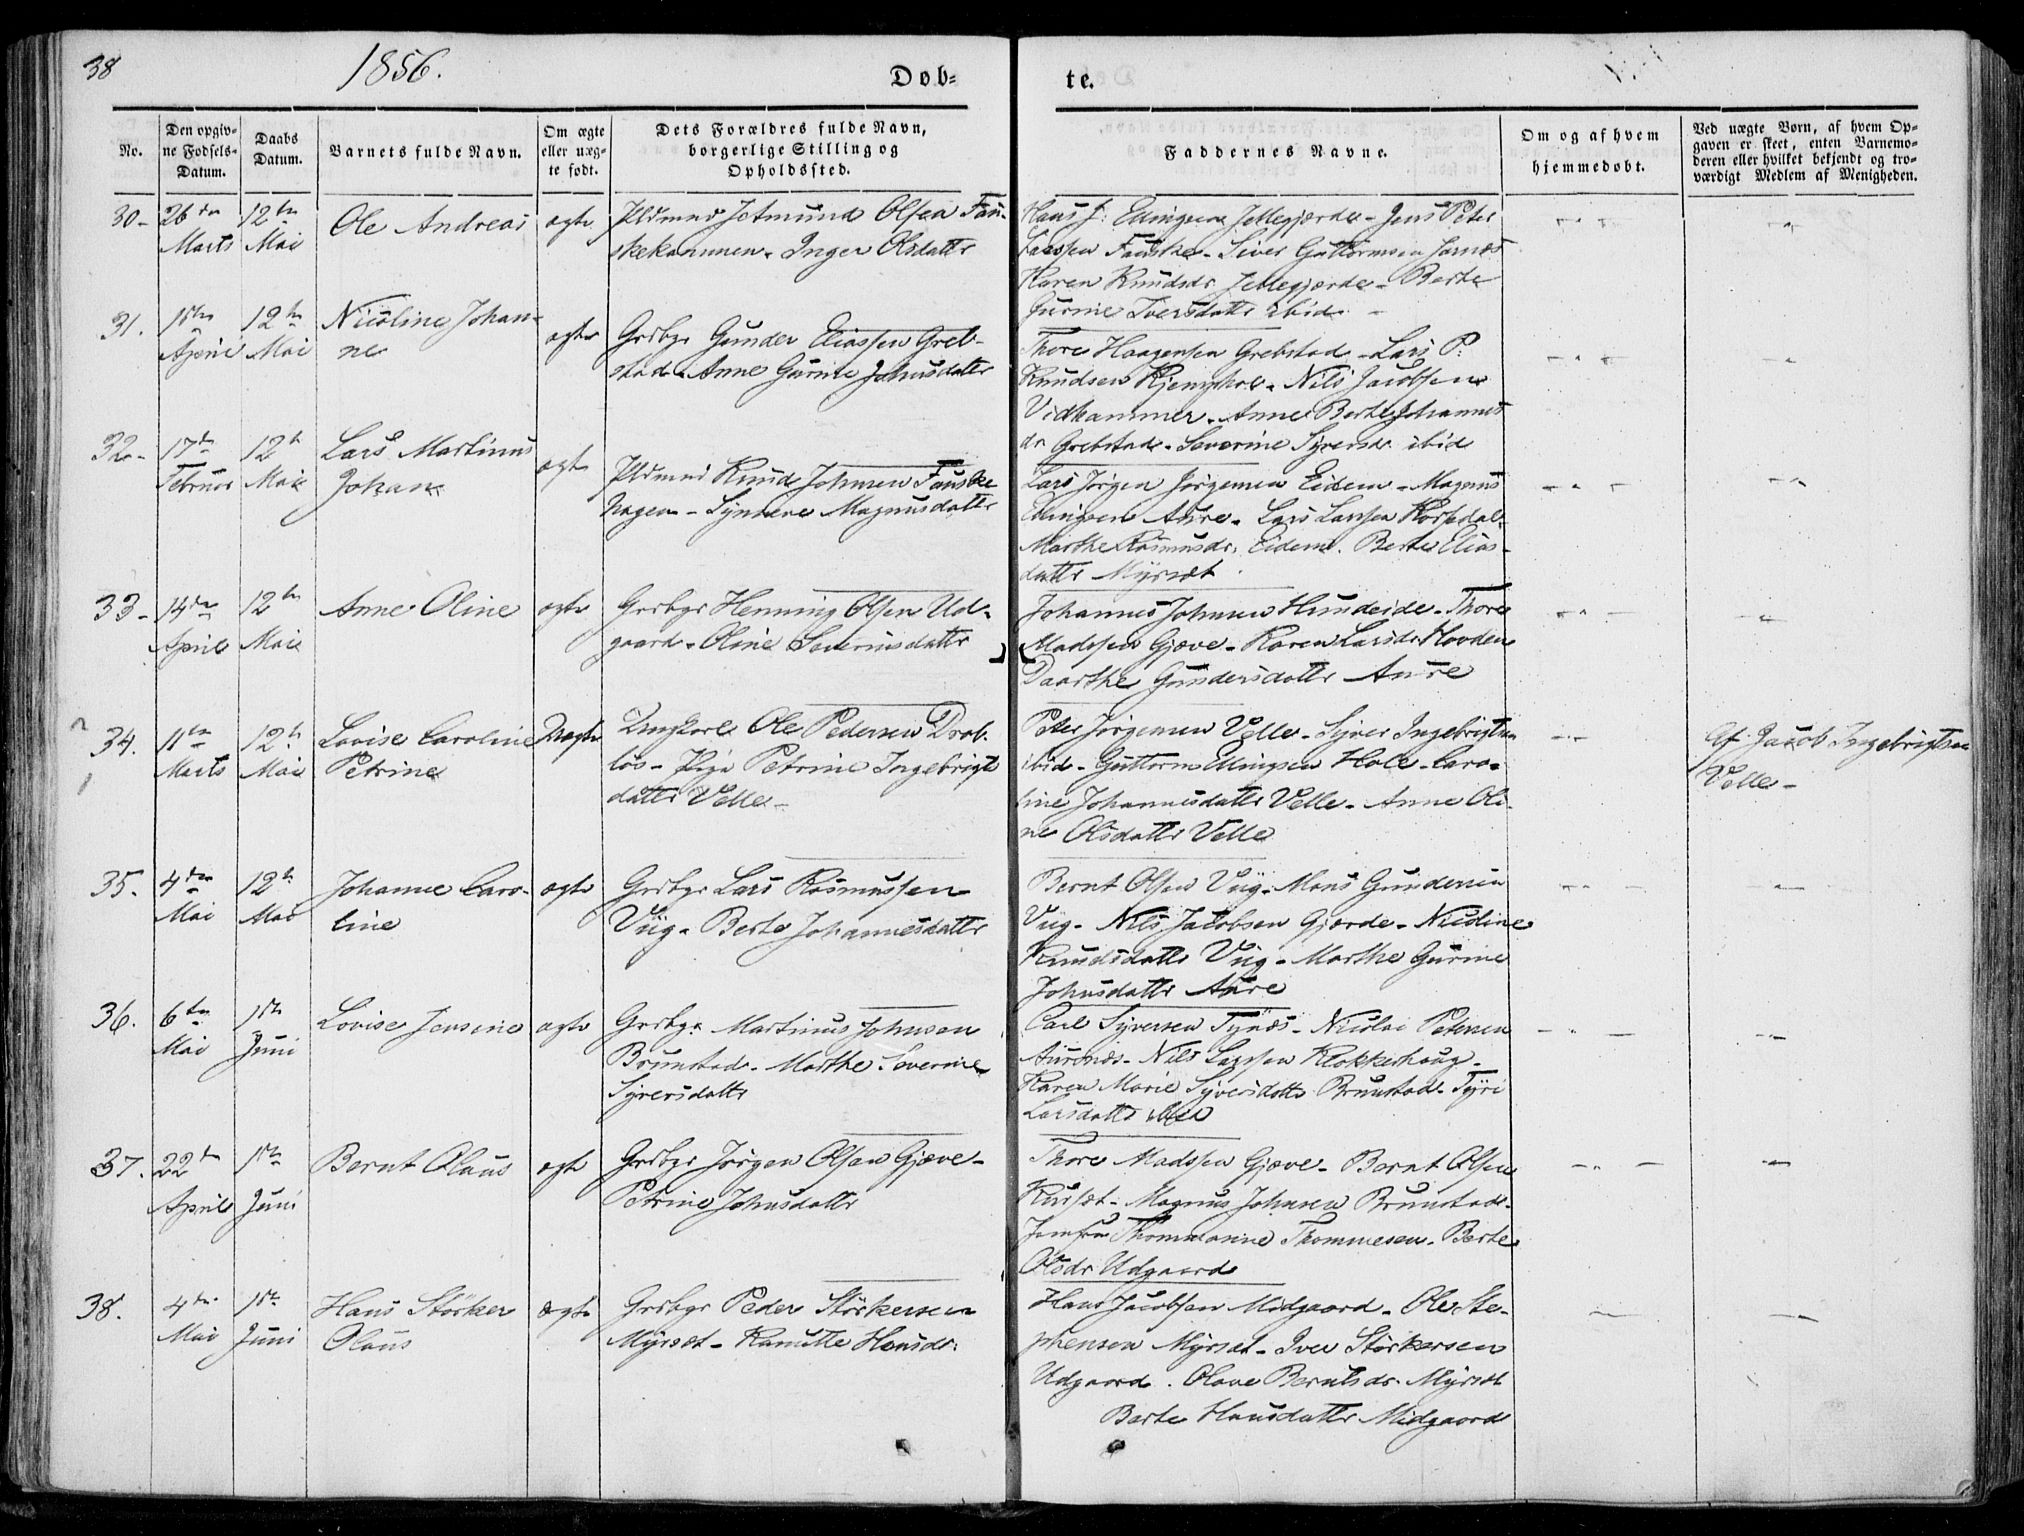 38
1856.
Døb-
te.
No.
Den opgiv-
ne Fødsels-
Datum.
Daabs
Datum.
Barnets fulde Navn.
Om ægte
eller uæg-
te født.
Dets Forældres fulde Navn,
borgerlige Stilling og
Opholdssted.
Faddernes Navne.
Om og af hvem
hjemmedøbt.
Ved uægte Børn, af hvem Op-
gaven er skeet, enten Barnemo-
deren eller hvilket bekjendt og tro-
værdigt Medlem af Menigheden.
30-
26de
Marts
12te
Mai
Ole Andreas
ægte
Pldmnd Jetmund Olsen Fau-
skekammen. Inger Olsdattr
Hans J: Ellingsen Jellegjærde - Jens Peter
Larssen Fauske - Siver Guttormsen Jarnæs
Karen Knudsdr Jellegjærde - Berte
Gurine Iversdattr ibid -
31.
1ste
April
12te
Mai
Nicoline Johan-
ne
ægte
Grdbgr Gunder Eliassen Greb-
stad - Anne Gurine Johnsdattr
Thore Haagensen Grebstad - Lars P:
Knudsen - Nils Jacobsen
Vidhammer - Anne Berte Johannes
dr Grebstad - Severine Syversdr ibid
32-
17de
Februar
12te
Mai
Lars Martinus
Johan
ægte
Pldmnd Knud Johnsen Fauske
hagen - Synneve Magnusdattr
Lars Jörgen Jörgensen Eidem - Magnus
Ellingsen Aure - Lars Larssen Korsedal-
Marthe Rasmusdr. Eidem. Berte Elias-
dattr Myrsæt.
33-
14de
April
12te
Mai
Anne Oline
ægte
Grdbgr Henning Olsen Ud-
gaard - Oline Severinsdattr
Johannes Johnsen Hundeide - Thore
Madssen Gjæve - Karen Larsdr Hovden
Daarthe Gundersdattr Aure
34.
11te
Marts
12te
Mai
Lovise Caroline
Petrine
Uægte
Ungkarl Ole Pedersen Drab-
løs - Pige Petrine Ingebrigts
dattr Velle -
Peter Jörgensen Velle - Syver Ingebrigtsen
ibid - Guttorm Ellingsen Hole - Caro-
line Johannesdattr Velle - Anne Oli-
ne Olsdattr Velle
Af Jacob Ingebrigtsen
Velle -
35.
4de
Mai
12te
Mai
Johanne Caro-
line
ægte
Grdbgr Lars Rasmussen
Viig - Berte Johannesdattr
Bernt Olsen Viig - Mons Gundersen
Viig - Nils Jacobsen Gjærde - Nicoline
Knudsdattr Viig - Marthe Gurine
Johnsdattr Aure
36.
6te
Mai
1ste
Juni
Lovise Jensine
ægte
Grdbgr Martinus Johnsen
Brunstad - Marthe Severine
Syversdattr
Carl Syversen Tynæs - Nicolai Petersen
Aurenæs - Nils Larssen Klokkerhoug -
Karen Marie Syversdattr Brunstad - Tyri
Larsdattr ibid
37.
22de
April
1ste
Juni
Bernt Olaus
ægte
Grdbgr Jörgen Olsen Gjæve -
Petrine Johnsdattr
Thore Madssen Gjæve - Bernt Olsen
Kursæt - Magnus Johnsen Brunstad -
Jomfru Thommanine Thommesen - Berte
Olsdr Udgaard
38.
4de
Mai
1ste
Juni
Hans Störker
Olaus
ægte
Grdbgr Peder Störkersen
Myrsæt - Kanutte Hansdr.
Hans Jacobsen Midgaard - Ole Ste-
phensen Myrsæt - Iver Störkersen
Udgaard. Olave Berntsdr. Myrsæt
Berte Hansdattr Midgaard